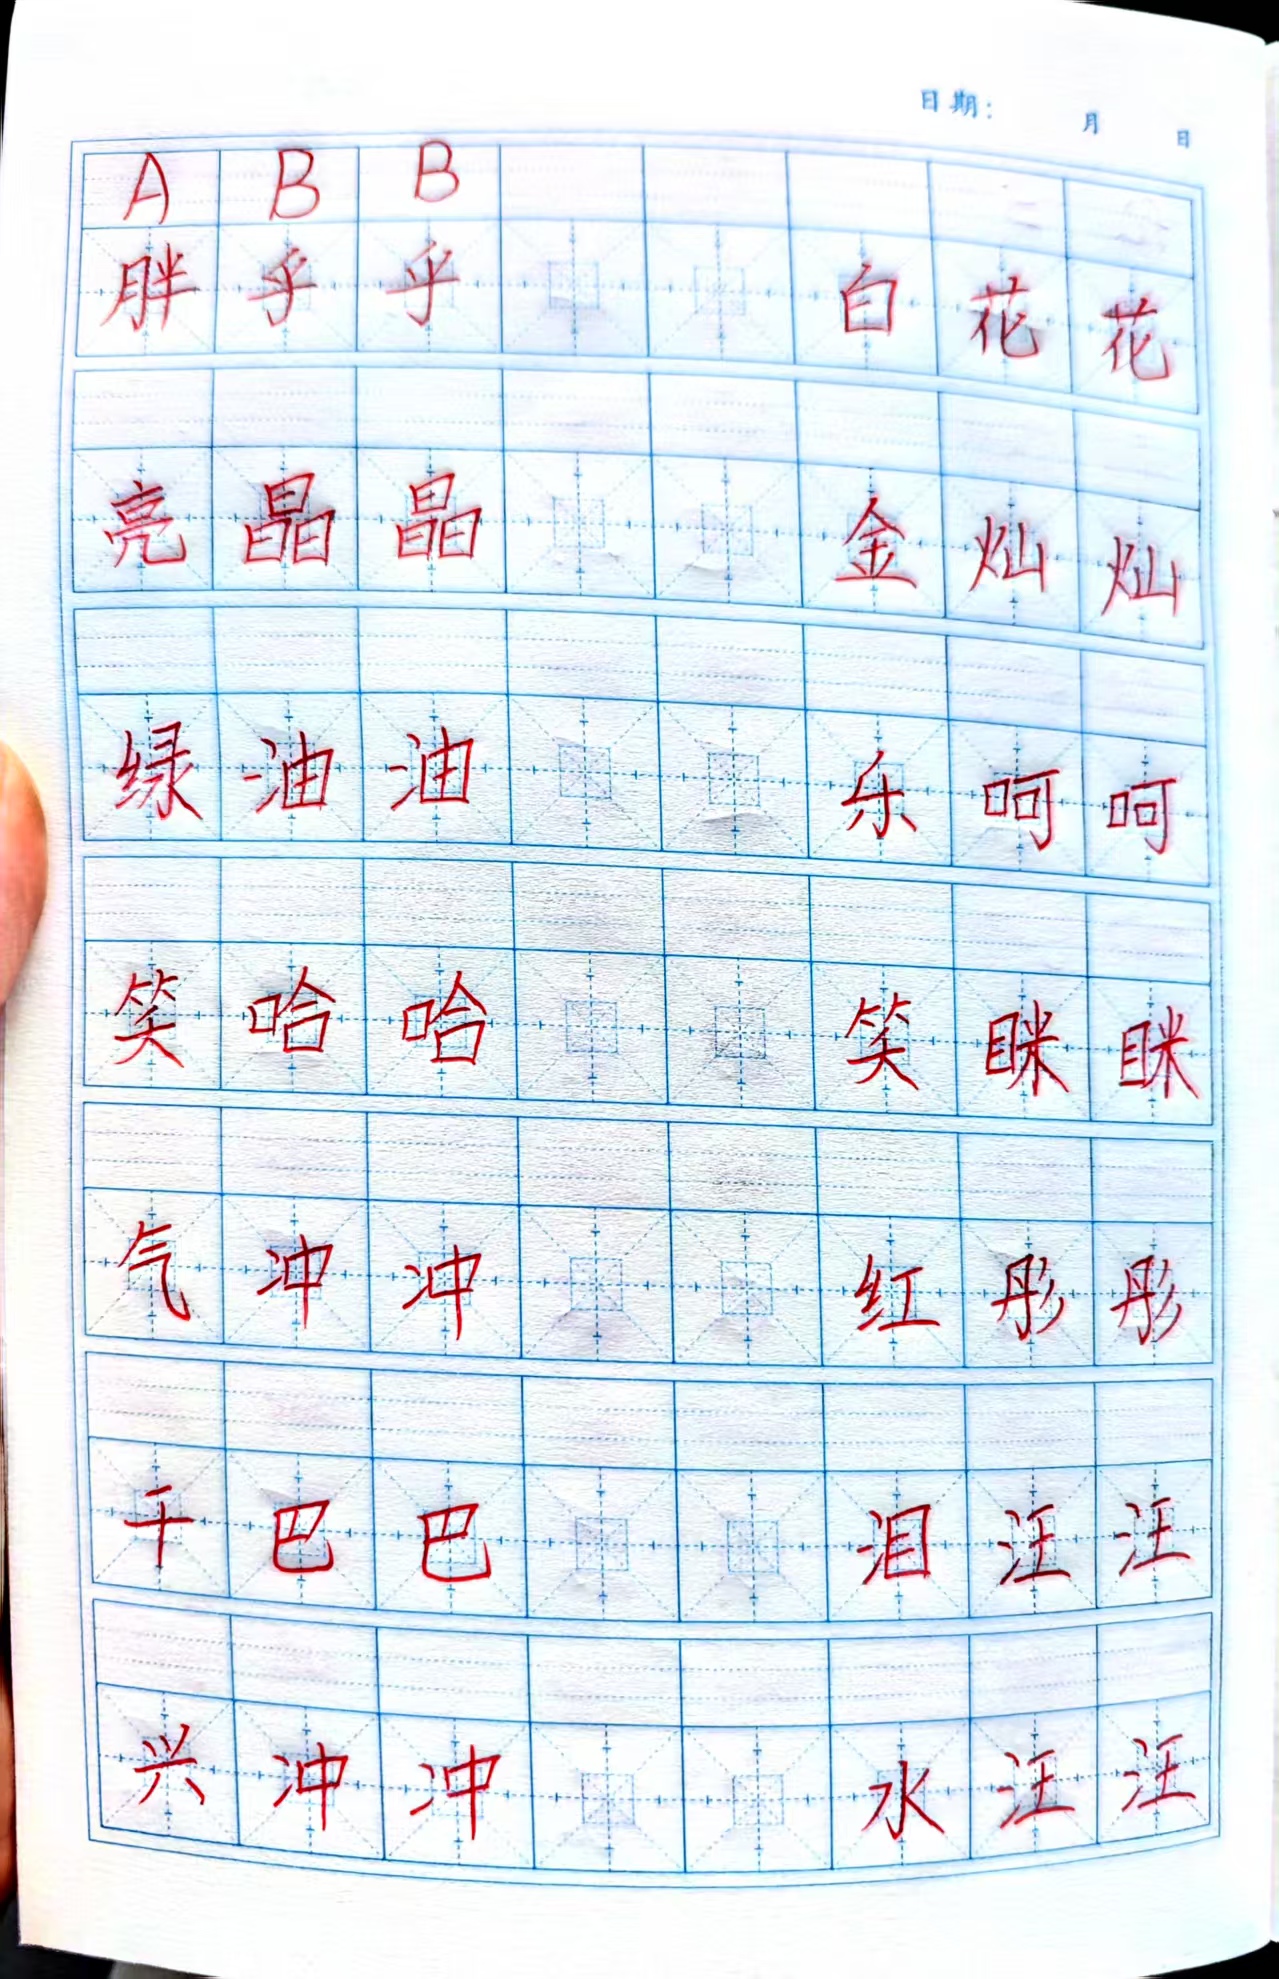 日期： 月 日
A B B
胖乎乎 白花花
亮晶晶 金灿灿
绿油油 乐呵呵
笑哈哈 笑眯眯
气冲冲 红彤彤
干巴巴 泪汪汪
兴冲冲 水汪汪